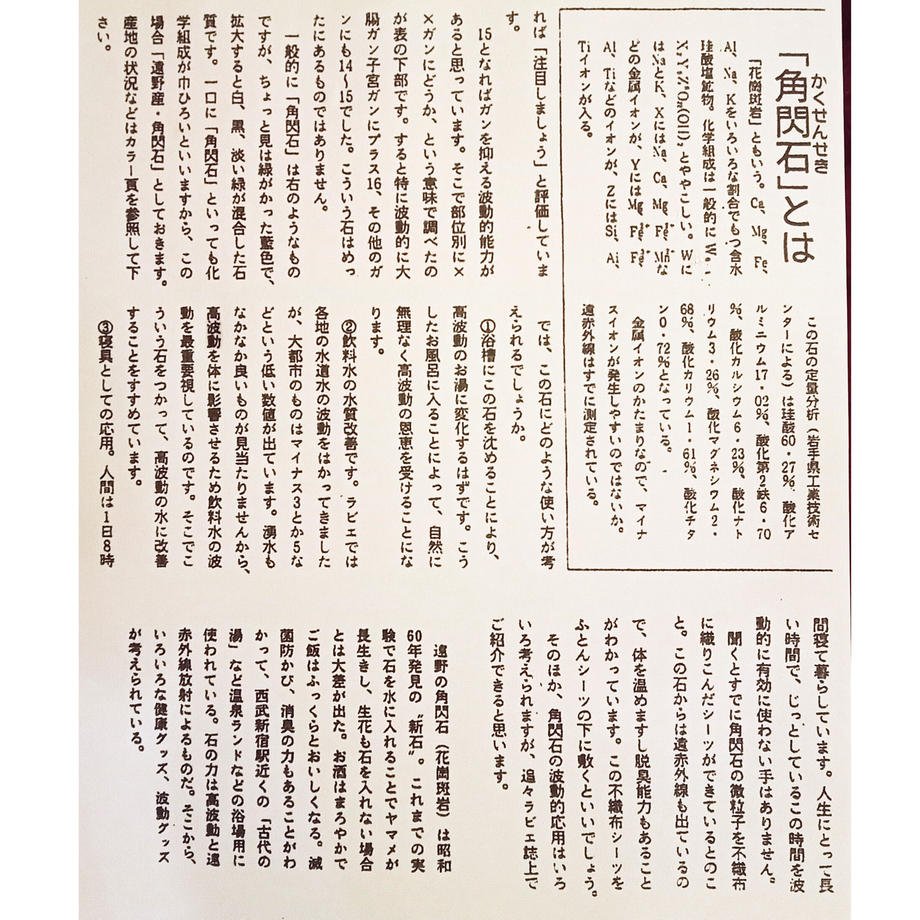 かくせんせき
「角閃石」とは
「花崗斑岩」ともいう。Ca、Mg、Fe、
Al、Na、Kをいろいろな割合でもつ含水
珪酸塩鉱物。化学組成は一般的に
とややこしい。Wに
はNaとK、XにはNa、Ca、Mg、
どの金属イオンが、Yには
Al、Tiなどのイオンが、ZにはSi、Al、
Tiイオンが入る。
この石の定量分析（岩手県工業技術セ
ンターによる）は珪酸60・27％、酸化ア
ルミニウム17・02％、酸化第2鉄6・70
％、酸化カルシウム6・23％、酸化ナト
リウム3・26％、酸化マグネシウム2・
68％、酸化カリウム1・61％、酸化チタ
ン0・72％となっている。
金属イオンのかたまりなので、マイナ
スイオンが発生しやすいのではないか。
遠赤外線はすでに測定されている。
れば「注目しましょう」と評価していま
す。
15となればガンを抑える波動的能力が
あると思っています。そこで部位別に×
×ガンにどうか、という意味で調べたの
が表の下部です。すると特に波動的に大
腸ガン子宮ガンにプラス16、その他のガ
ンにも14〜15でした。こういう石はめっ
たにあるものではありません。
一般的に「角閃石」は右のようなもの
ですが、ちょっと見は緑がかった藍色で、
拡大すると白、黒、淡い緑が混合した石
質です。一口に「角閃石」といっても化
学組成が巾ひろいといいますから、この
場合「遠野産・角閃石」としておきます。
産地の状況などはカラー頁を参照して下
さい。
では、この石にどのような使い方が考
えられるでしょうか。
①浴槽にこの石を沈めることにより、
高波動のお湯に変化するはずです。こう
したお風呂に入ることによって、自然に
無理なく高波動の恩恵を受けることにな
ります。
②飲料水の水質改善です。ラビエでは
各地の水道水の波動をはかってきました
が、大都市のものはマイナス3とか5な
どという低い数値が出ています。湧水も
なかなか良いものが見当たりませんから、
高波動を体に影響させるため飲料水の波
動を最重要視しているのです。そこでこ
ういう石をつかって、高波動の水に改善
することをすすめています。
③寝具としての応用。人間は1日8時
間寝て暮らしています。人生にとって長
い時間で、じっとしているこの時間を波
動的に有効に使わない手はありません。
聞くとすでに角閃石の微粒子を不織布
に織りこんだシーツができているとのこ
と。この石からは遠赤外線も出ているの
で、体を温めますし脱臭能力もあること
がわかっています。この不織布シーツを
ふとんシーツの下に敷くといいでしょう。
そのほか、角閃石の波動的応用はいろ
いろ考えられますが、追々ラビエ誌上で
ご紹介できると思います。
遠野の角閃石（花崗斑岩）は昭和
60年発見の〝新石〟。これまでの実
験で石を水に入れることでヤマメが
長生きし、生花も石を入れない場合
とは大差が出た。お酒はまろやかで
ご飯はふっくらとおいしくなる。滅
菌防かび、消臭の力もあることがわ
かって、西武新宿駅近くの「古代の
湯」など温泉ランドなどの浴場用に
使われている。石の力は高波動と遠
赤外線放射によるものだ。そこから、
いろいろな健康グッズ、波動グッズ
が考えられている。